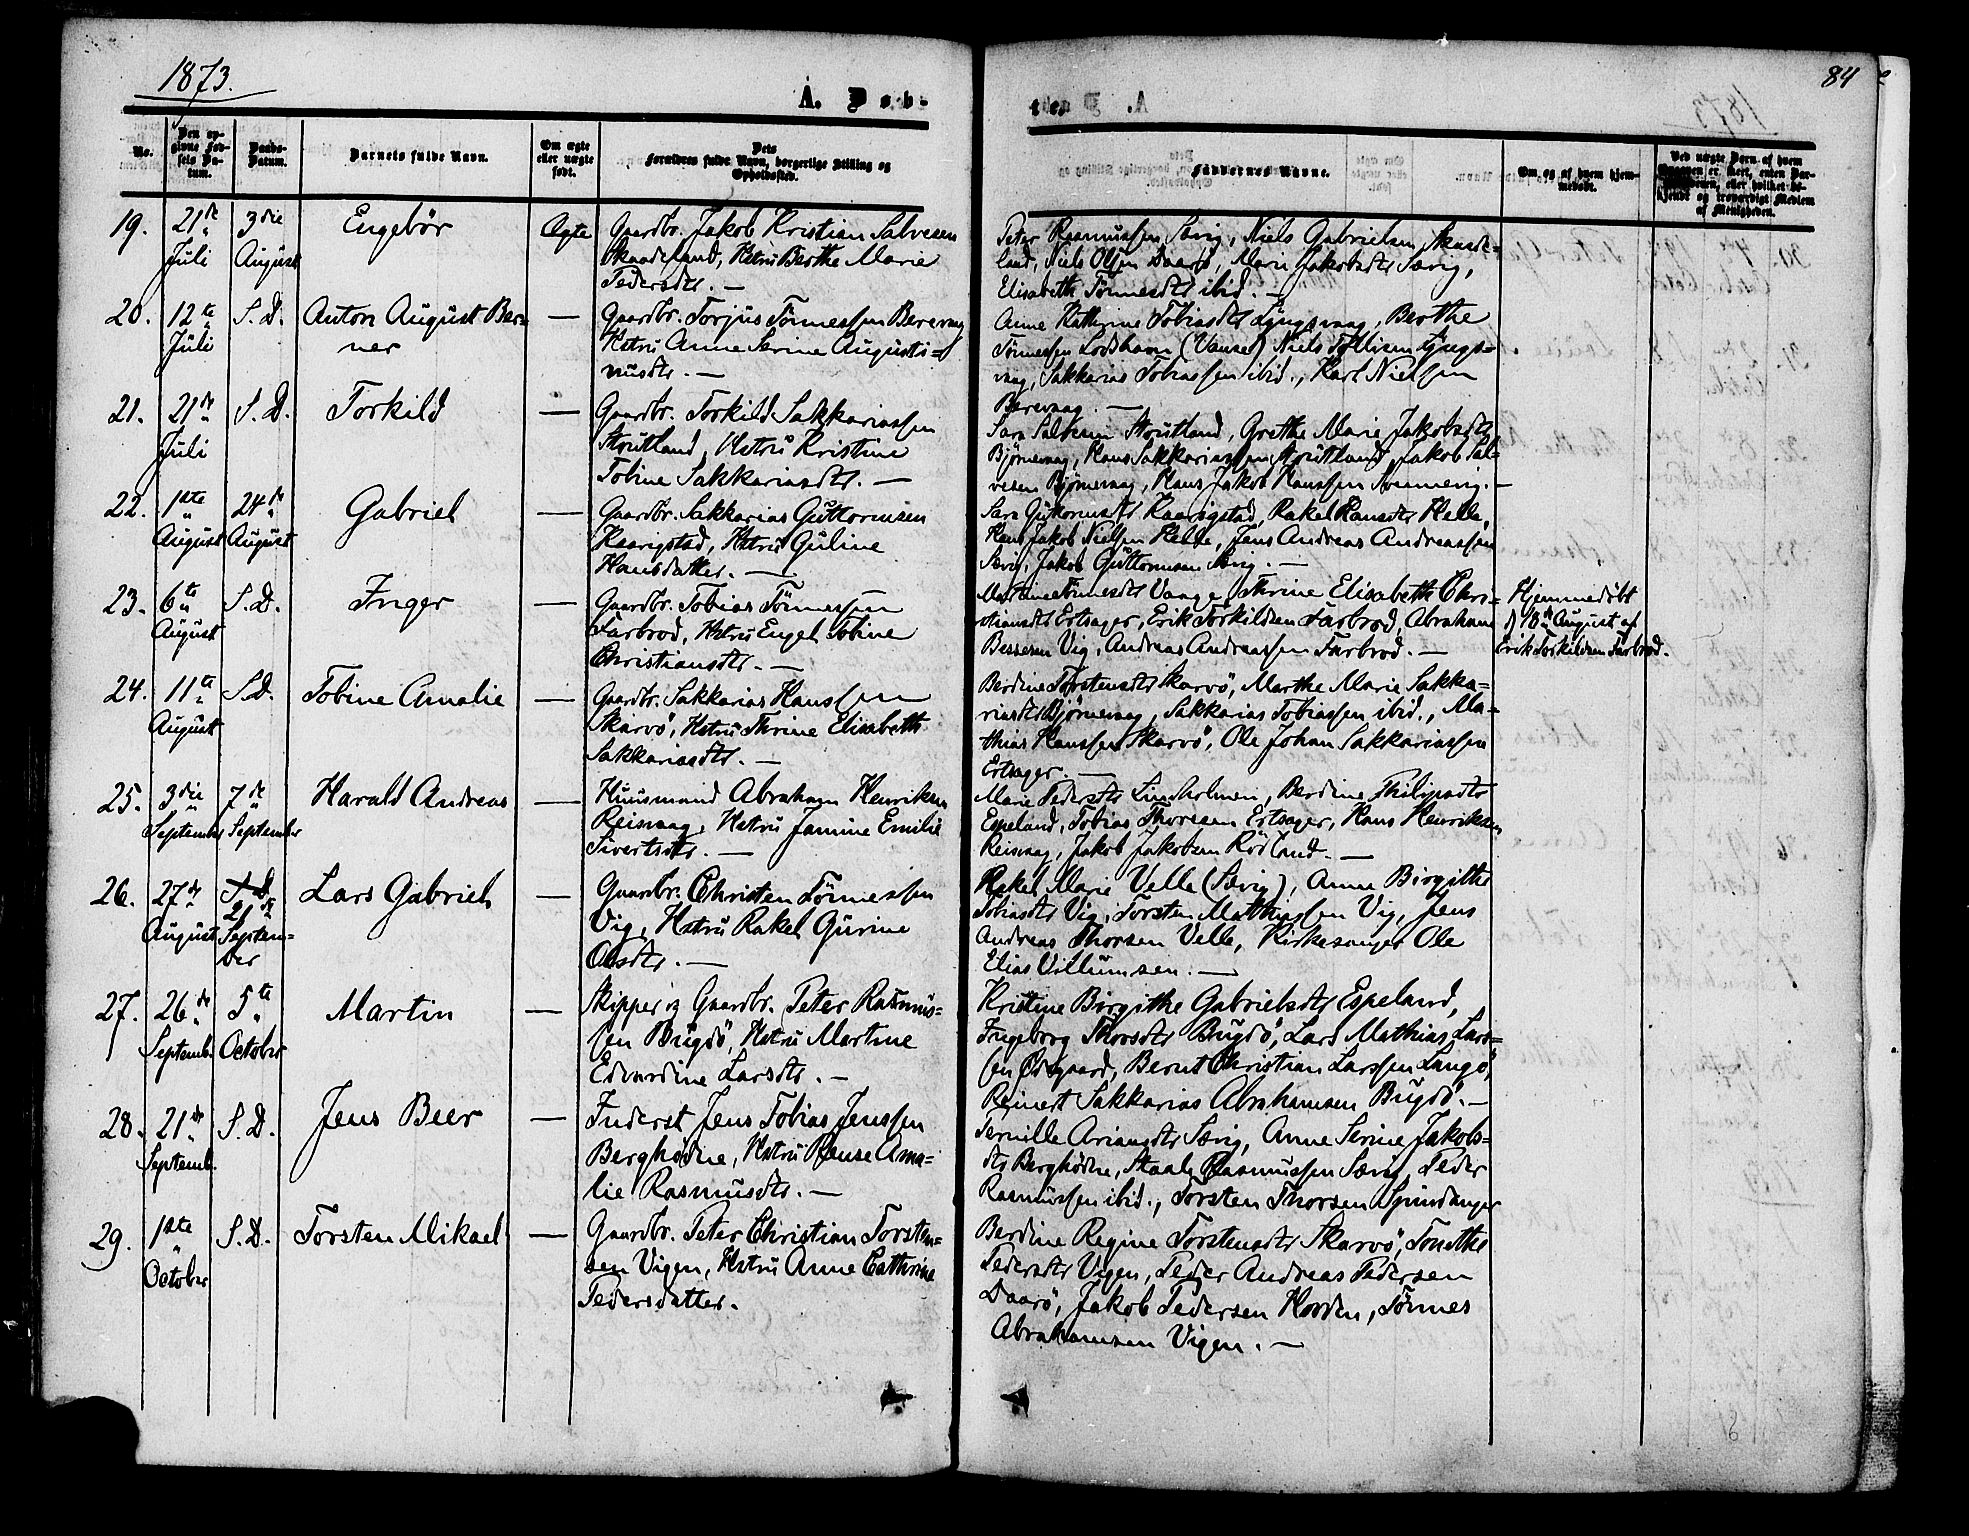 1873.
84
A. Døb-
te.
No.
Den op-
givne Fød-
sels Da-
tum.
Daabs-
Datum.
Barnets fulde Navn.
Om ægte
eller uægte
født.
Dets
Forældres fulde Navn, borgerlige Stilling og
Opholdssted.
Faddernes Navne.
Om og af hvem hjem-
medøbt.
Ved uægte Børn af hvem
Opgaven er skeet, enten Bar-
nefaderen, eller hvilket be-
kjendt og troværdigt Medlem
af Menigheden.
19.
21de
Juli
3die
August
Engebör
Ægte
Gaardbr. Jakob Kristian Salvesen
Skaadeland, Hstrü Berthe Marie
Pedersdtr. —
Peter Rasmussen Sævig, Niels Gabrielsen Skaade-
land, Niels Olsen Daarö, Marie Jakobsdtr Sævig,
Elisabeth Tönnesdtr ibid. —
20.
12te
Juli
S. D.
Anton August Ber-
ner
—
Gaardbr. Torjus Tönnessen Berevaag
Hstrü Anne Serine Augusti-
nusdtr. —
Anne Kathrine Tobiasdtr Lyngsvaag, Berthe
Tönnessen Lodshavn (Vanse) Niels Tollisen Lyngs-
vaag, Sakkarias Tobiassen ibid., Karl Nielsen
Berevaag. —
21.
21de
Juli
S. D.
Torkild
—
Gaardbr. Torkild Sakkariassen
Stoutland, Hstrü Kristine
Tobine Sakkariasdtr. —
Sara Salvesen Stoutland, Grethe Marie Jakobsdtr
Björnevaag, Hans Sakkariassen Stoutland, Jakob Sal-
vesen Björnevaag, Hans Jakob Hanssen —
22.
1ste
August
24de
August
Gabriel
—
Gaardbr. Sakkarias Guttormsen
Kaarigstad, Hstrü Guline
Hansdatter. —
Sara Guttormsdtr Kaarigstad, Rakel Hansdtr Helle,
Hans Jakob Nielsen Helle, Jens Andreas Andreassen
Sævig, Jakob Guttormsen Sævig. —
23.
6te
August
S. D.
Inger
—
Gaardbr. Tobias Tönnessen
Farbrod, Hstrü Engel Tobine
Christiansdtr. —
Martine Tönnesdtr Vaage, Thrine Elisabeth Chri-
stiansdtr Ertsager, Erik Torkildsen Farbrod, Abraham
Bessesen Vig, Andreas Andreassen Farbrod. —
Hjemmedöbt
d 18de August af
Erik Torkildsen Farbrod.
24.
11te
August
S. D.
Tobine Amalie
—
Gaardbr. Sakkarias Hanssen
Skarvö, Hstrü Thrine Elisabeth
Sakkariasdtr. —
Berdine Torstensdtr Skarvö, Marthe Marie Sakka-
riasdtr Björnevaag, Sakkarias Tobiassen ibid., Ma-
thias Hanssen Skarvö, Ole Johan Sakkariassen
Ertsager. —
25.
3die
September
7de
September
Harald Andreas
—
Huusmand Abraham Henriksen
Reisvaag, Hstrü Jamine Emilie
Sivertsdtr. —
Marie Pedersdtr Lindholmen, Berdine Philipsdtr
Espeland, Tobias Thoresen Ertsager, Hans Henriksen
Reisvaag, Jakob Jakobsen Rödland. —
26.
27de
August
S. D.
21de
Septem-
ber
Lars Gabriel
—
Gaardbr. Christen Tönnessen
Vig, Hstrü Rakel Gurine
Olsdtr. —
Rakel Marie Velle (Sævig), Anne Birgithe
Tobiasdtr Vig, Torsten Matthiassen Vig, Jens
Andreas Thorsen Velle, Kirkesanger Ole
Elias Villumsen. —
27.
26de
Septembr
5te
October
Martin
—
Skipper og Gaardbr. Peter Rasmus-
sen Bugdö, Hstrü Martine
Edvardine Larsdtr. —
Kristine Birgithe Gabrielsdtr Espeland,
Ingeborg Thorsdtr Bugdö, Lars Mathias Lars-
sen Ödegaard, Bernt Christian Larssen Langö,
Reinert Sakkarias Abrahamsen Bugdö. —
28.
21de
Septemb.
S. D.
Jens Beer
—
Inderst Jens Tobias Jenssen
Berghödne, Hstrü Rense Ama-
lie Rasmusdtr. —
Pernille Ariansdtr Sævig, Anne Serine Jakobs-
dtr Berghödne, Staaly Rasmussen Sævig, Peder
Rasmussen ibid., Torsten Thorsen Spindanger
29.
1ste
October
S. D.
Torsten Mikael
—
Gaardbr. Peter Christian Torsten-
sen Vigen, Hstrü Anne Cathrine
Pedersdatter.
Berdine Regine Torstensdtr Skarvö, Tonethe
Pedersdtr Vigen, Peder Andreas Pedersen
Daarö, Jakob Pedersen Hovden, Tönnes
Abrahamsen Vigen. —